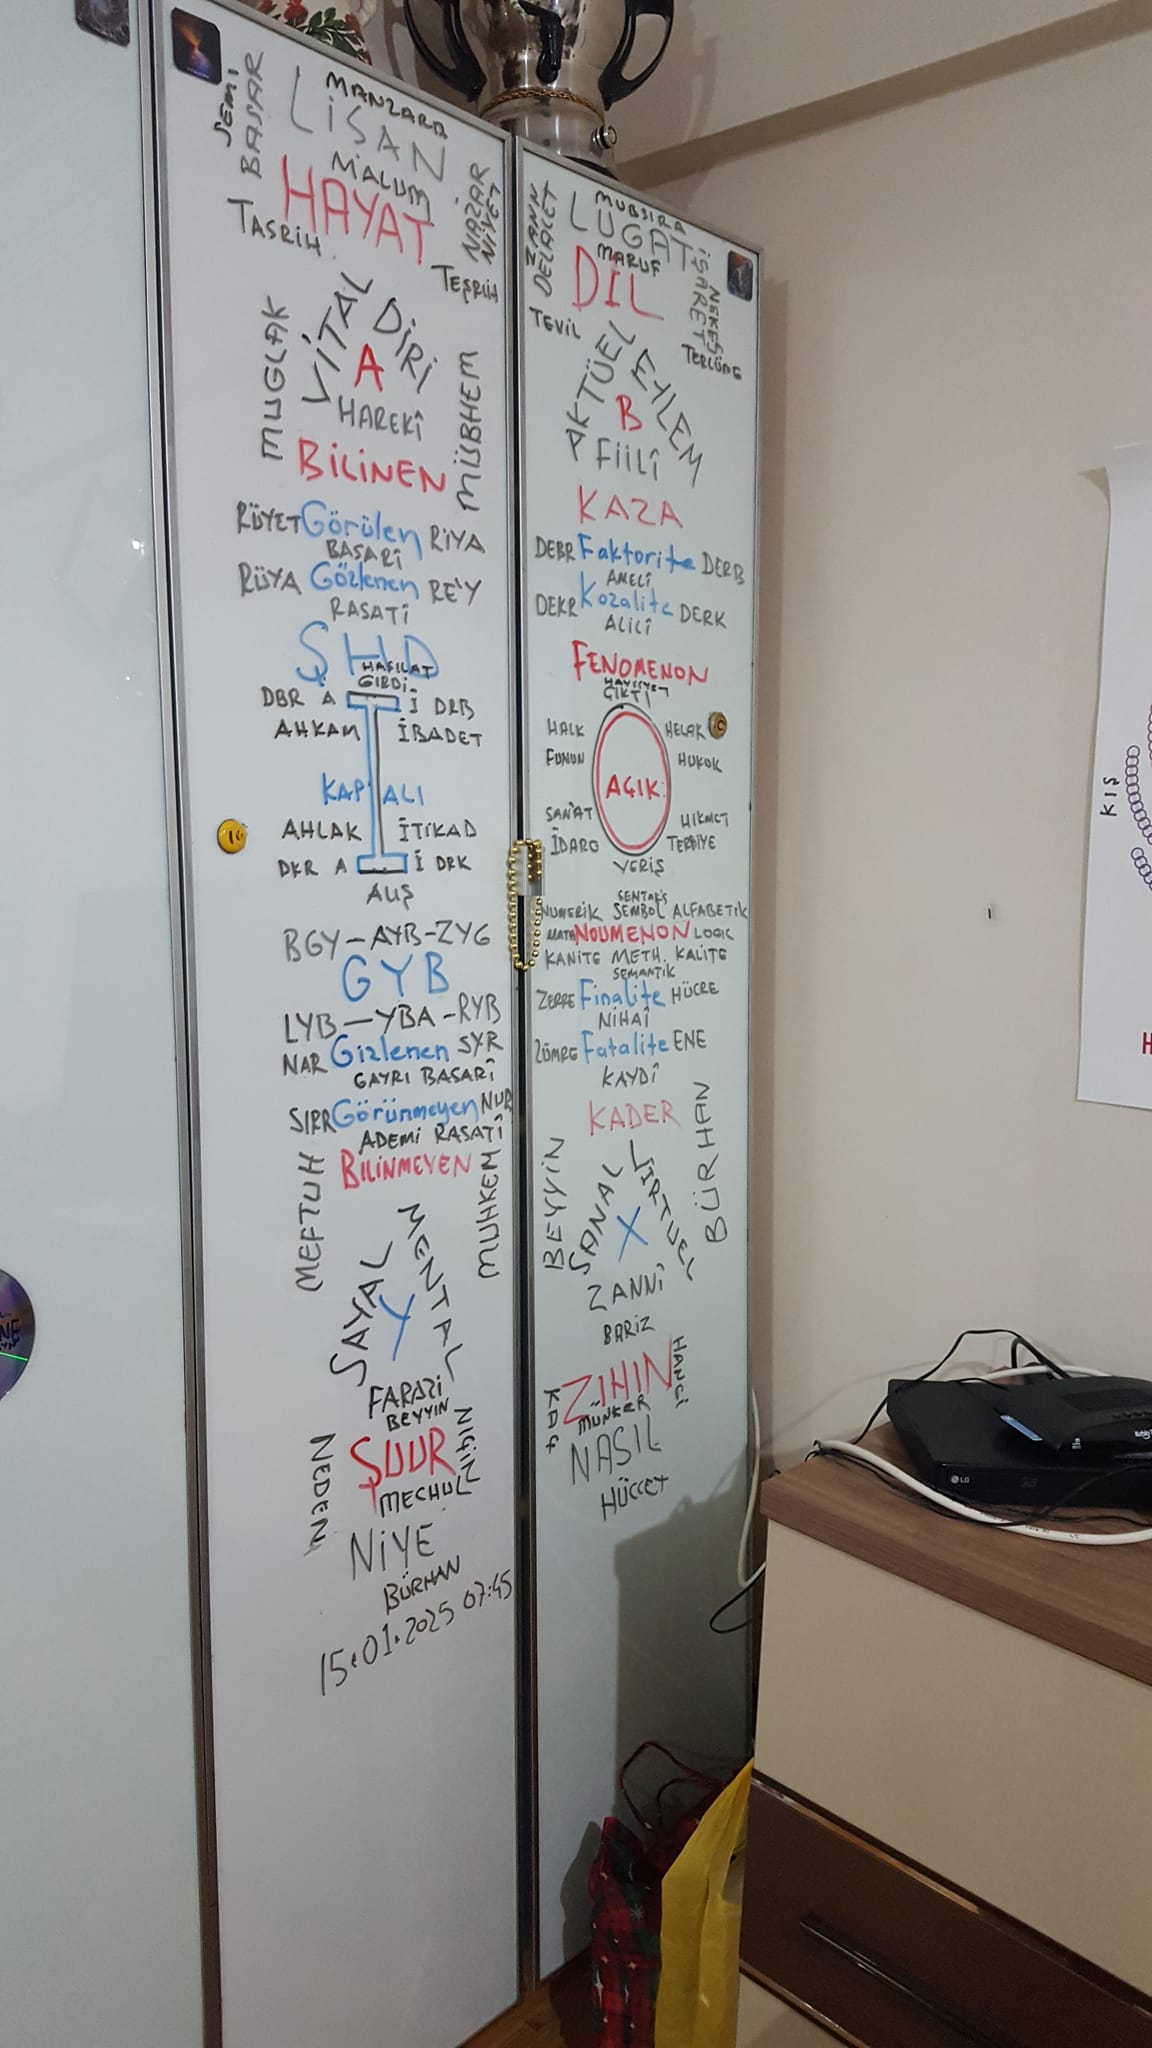 MANZARA
SEMİ BASAR
LİSAN
MALUM
HAYAT
NAZAR NİYET
TASRİH
TEŞRİH
VİTAL
DİRİ
A
HAREKÎ
MUGLAK
MÜBHEM
BİLİNEN
RÜYET Görülen RİYA
BASARÎ
RÜYA Gözlenen RE'Y
RASATÎ
ŞHD
HASILAT
GİRDİ
DBR A İ DRB
AHKAM İBADET
KAPALI
AHLAK İTİKAD
DKR A İ DRK
ALIŞ
BGY-AYB-ZYG
GYB
LYB-YBA-RYB
NAR Gizlenen SYR
GAYRI BASARÎ
SIRR Görünmeyen NUR
ADEMİ RASATÎ
BİLİNMEYEN
MEFTUH
MUHKEM
SAYAL
MENTAL
Y
FARAZİ
BEYYİN
NEDEN
ŞUUR
NİÇİN
MECHUL
NİYE
BÜRHAN
15.01.2025 07:45
MUBSIRA
ZANN DELALET
LUGAT
MARUF
DİL
İŞARET
TEVİL
TERCÜME
AKTÜEL
EYLEM
B
FİİLÎ
KAZA
DEBR Faktorite DERB
AMELÎ
DEKR Kozalite DERK
ALİLÎ
FENOMENON
ÇIKTI
HALK HELAK
FUNUN HUKUK
AÇIK
SAN'AT HİKMET
İDARE TERBİYE
VERİŞ
SENTAKS
NUMERİK SEMBOL ALFABETİK
MATH NOUMENON LOGIC
KANİTE METH. KALİTE
SEMANTİK
ZERRE Finalite HÜCRE
NİHAÎ
ZÜMRE Fatalite ENE
KAYDÎ
KADER
BEYYİN
BÜRHAN
SANAL
VİRTUEL
X
ZANNÎ
BARİZ
ZİHİN
HANGİ
KAÇ
MÜNKER
NASIL
HÜCCET
KIŞ
H
LG